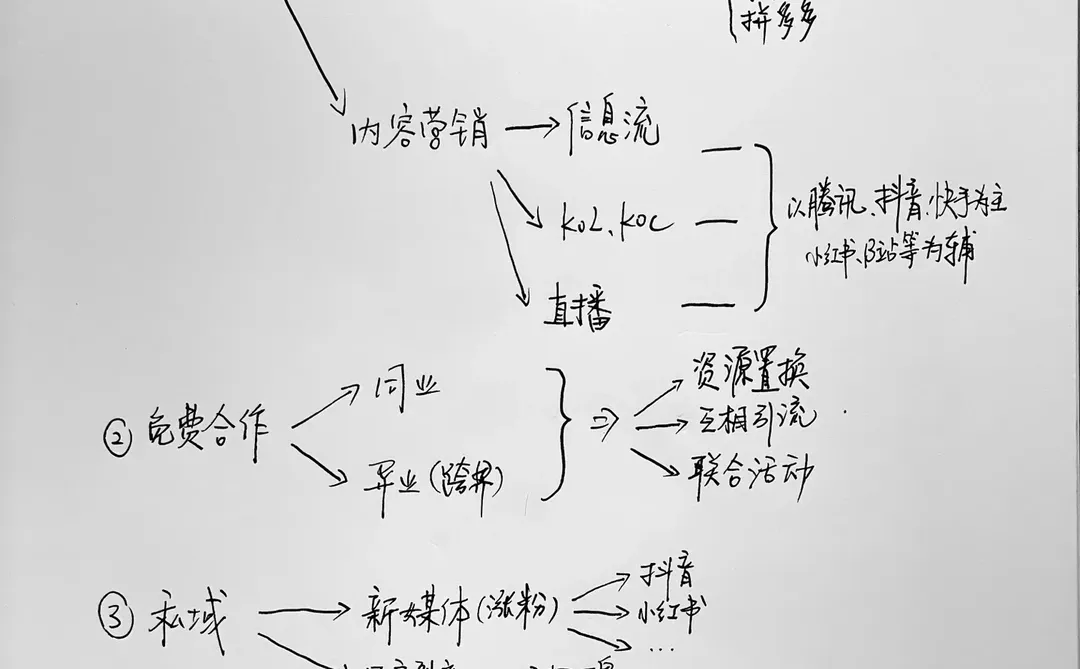 拼多多
内容营销
信息流
KOL、KOC
直播
以腾讯、抖音、快手为主
小红书、B站等为辅
② 免费合作
同业
异业(跨界)
资源置换
互相引流
联合活动
③ 私域
新媒体(涨粉)
抖音
小红书
...